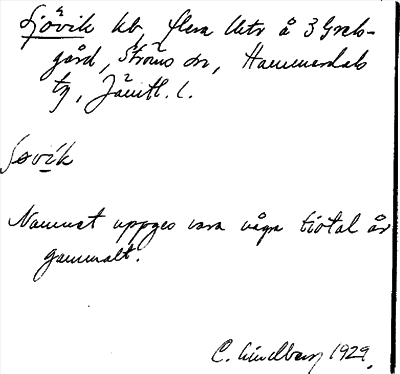 Sjövik kb, flera lhtr å 3 Grels-
gård, Ströms sn, Hammerdals
tg, Jämtl. l.
Søvik
Namnet uppges vara några tiotal år
gammalt.
C. Lindberg 1929.